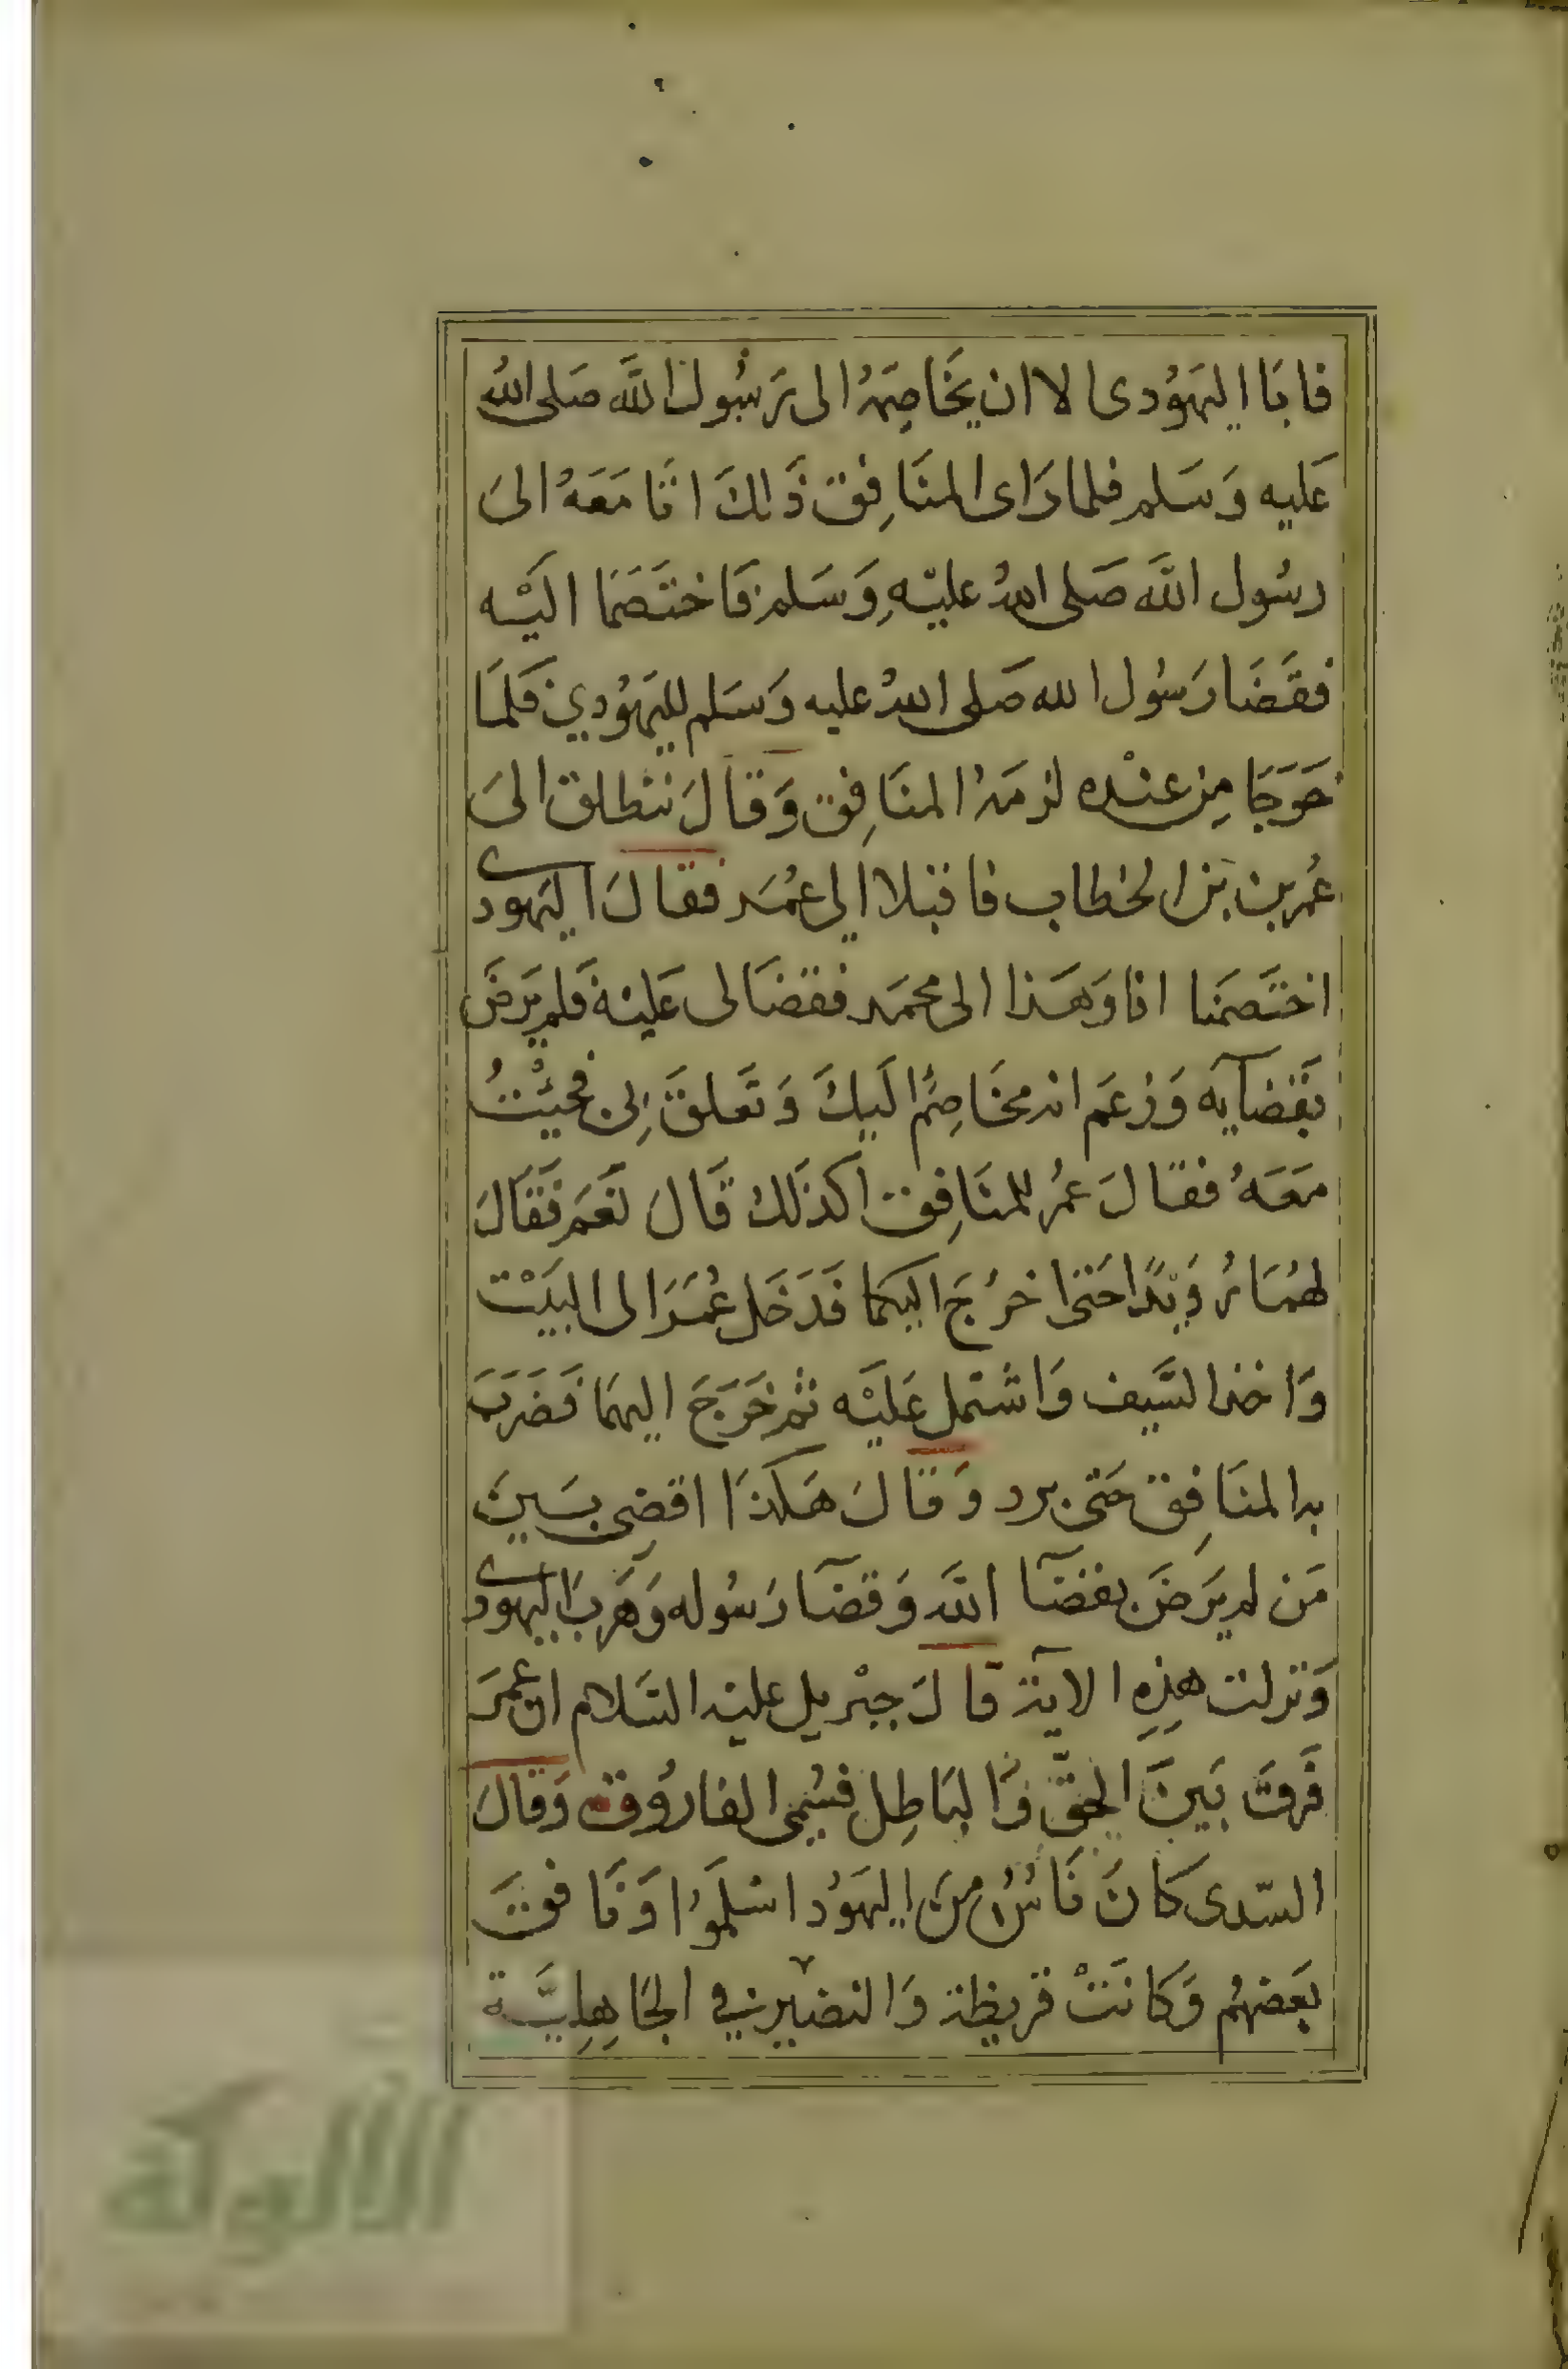 فابَا اليَهُودى الا ان يخَاصِمهُ الى رَسُول اللَّه صَلى اللهُ
عَليه وَسَلم فلما رَاى المنَافِق ذَلكَ اتَا مَعَهُ الىَ
رسُول اللَّه صَلى اللهُ عليْهِ وَسَلم فَاختَصَمَا اليَْه
فقَضَا رَسُول الله صَلى اللهُ عليه وَسَلم لليَهُودي فلمَا
خَرَجَا مِن عنْده لزمَهُ المنَافِق وَقالَ ننطلق الىَ
عُمر بن بن الخطاب فاقبَلا الي عُمَر فقالَ اليَهودى
اختَصَمنَا انا وَهَذا الى محمَد فقضَا لى عَليْه فَلم يَرضَ
بقَضآيه وَزعَم انه مخَاصِمُ اليكَ وَتعَلقَ بِى فجئْتُ
مَعَهُ فقالَ عمُر للمنَافِق اكذلك قَالَ نعَم فَقَالَ
لهُمَا رُوَيْدًا حَتى اخرُجَ اليكما فَدَخَل عُمَرَ الى البَيْت
وَاخذ السَّيف وَاشتمل عَليَْه ثم خَرَجَ اليهمَا فَضَربَ
به المنَافِق حَتى برد وَقالَ هَكذَا اقضِى بَيَن
مَن لم يَرضَ بقضَآ اللَّه وَقضَآ رَسُوله وَهَربَ اليَهودى
وَنزلت هذِهِ الايَة قالَ جبْريل عليْه السَّلام ان عمرَ
فَرقَ بَينَ الحقّ وَالبَاطِل فسُمِى الفارُوق وَقالَ
السّدى كانَ نَاسُ مِنَ اليَهُود اسْلَمُوا وَنَافقَ
بَعضهُم وَكانَتْ قريظة وَالنضير في الجَاهِليَّة
الألوكة